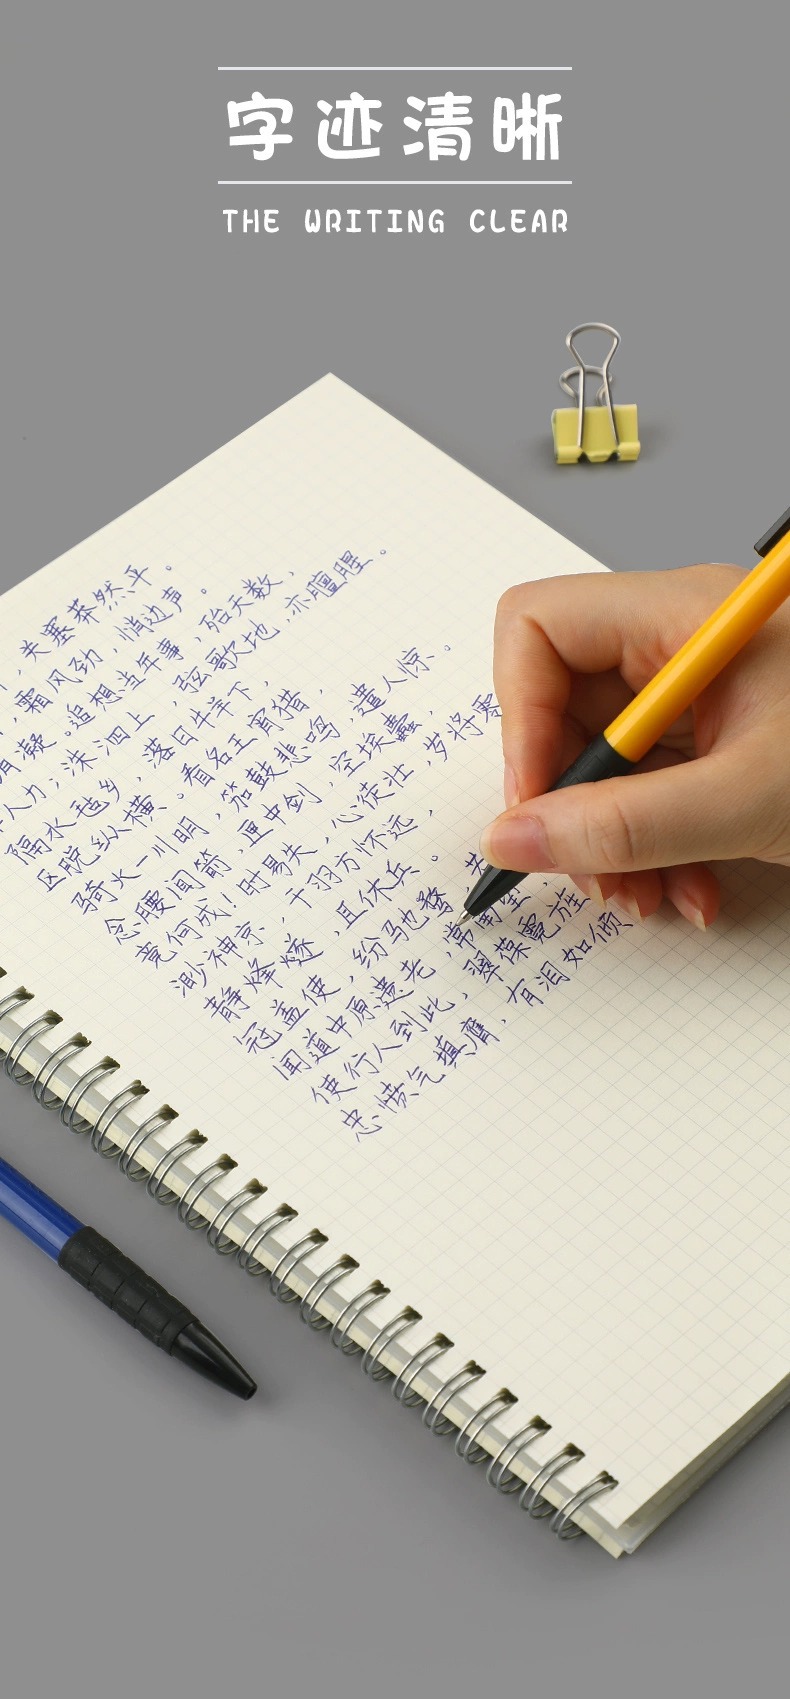 字迹清晰
THE WRITING CLEAR
,关塞莽然平。
,霜风劲,悄边声。
凝。追想当年事,殆天数,
人力;洙泗上,弦歌地,亦膻腥。
隔水毡乡,落日牛羊下,
区脱纵横。看名王宵猎,
骑火一川明,笳鼓悲鸣,遣人惊。
念腰间箭,匣中剑,空埃蠹,
竟何成!时易失,心徒壮,岁将零
渺神京,干羽方怀远,
静烽燧,且休兵。
冠盖使,纷驰骛,
闻道中原遗老,常南望,
使行人到此,翠葆霓旌
忠愤气填膺,有泪如倾